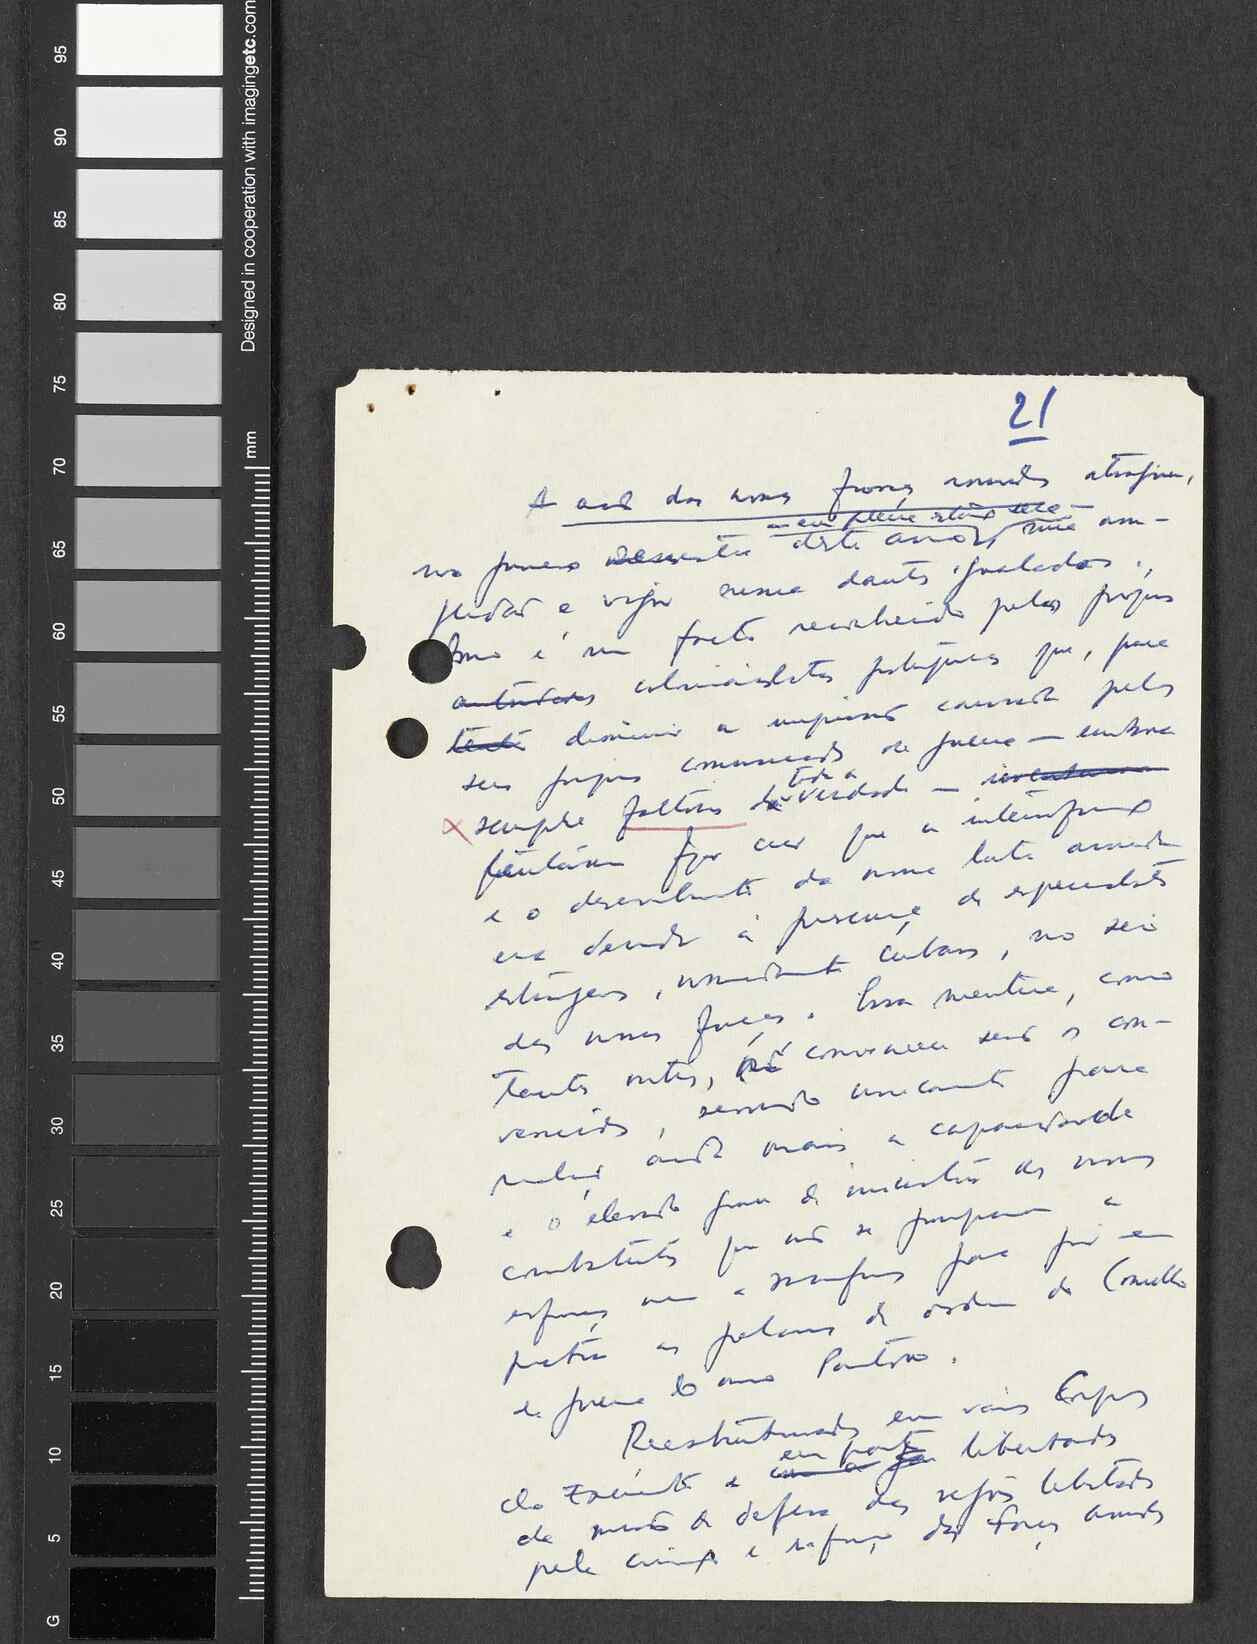 95
90
85
80
75
70
65
60
55
50
45
40
35
30
25
20
15
10
5
G
Designed in cooperation with imagingetc.com
mm
21
A acção das nossas forças armadas atingiu,
em plena estação seca
no deste ano, uma am-
plidão e vigor nunca dantes igualados.
Isso é um facto reconhecido pelos próprios
autoridades colonialistas portugueses que, para
diminuir a impressão causada pelos
seus próprios comunicados de guerra — embora
toda a
sempre faltos da verdade —
tentaram fazer crer que a
e o desenvolvimento da nossa luta armada
era devido à presença de especialistas
estrangeiros, nomeadamente cubanos, no seio
das nossas forças. Essa mentira, como
tantas outras, não convenceu senão os con-
vencidos, servindo unicamente para
ainda mais a capacidade
e o elevado grau de iniciativa dos nossos
combatentes que não se poupam a
esforços nem a sacrifícios para pôr em
prática as palavras de ordem do Conselho
de guerra do nosso Partido.
Reestruturadas em vários Corpos
do Exército e em parte libertados
da missão de defesa das regiões libertadas
pela criação e reforço das Forças armadas